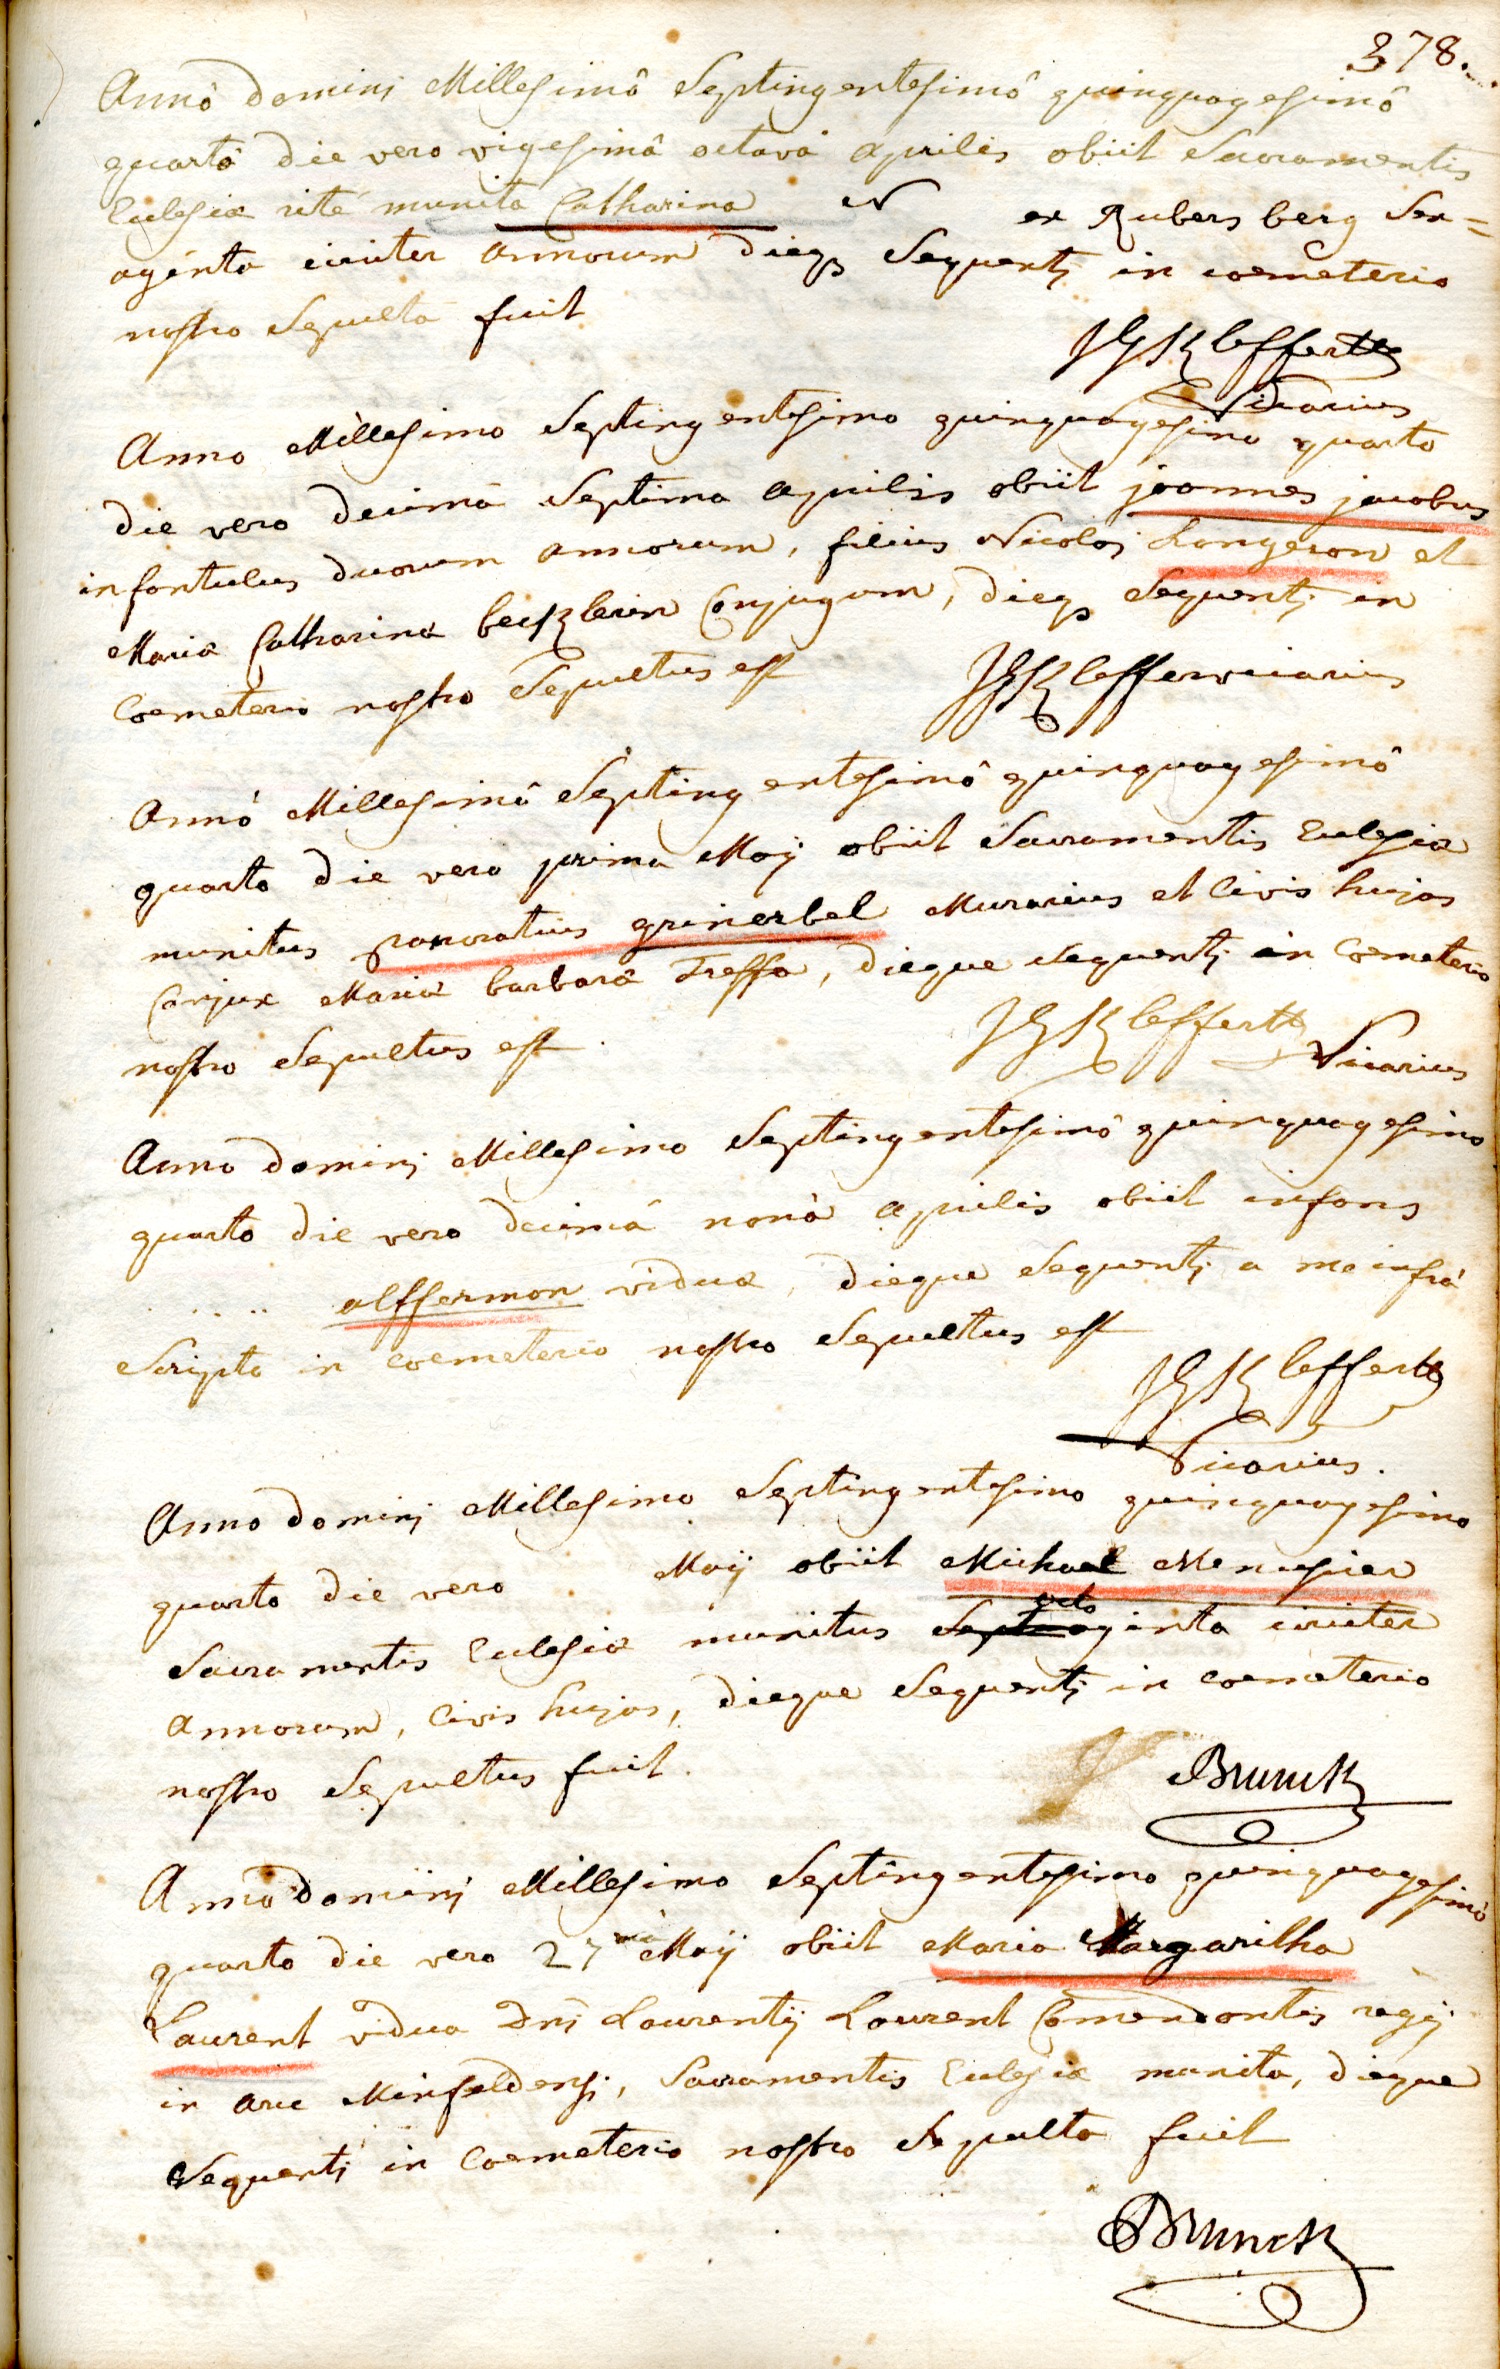 378.
Annô Dominj Millesimô Septingentesimô quinquagesimô
quartô die vero vigesimâ octavâ aprilis obiit Sacramentis
Eclesiæ rité munita Catharina N ex Rubersberg Sex=
aginta circiter annorum dieqз Sequentj in coemeterio
nostro Sepulta fuit
JGKleffertz
Vicarius
Anno Millesimo Septingentesimo quinquagesimo quarto
die vero decimâ Septima aprilis obiit joannes jacobus
infantulus duorum annorum, filius Nicolaj Longeron et
Mariæ Catharinæ Conjugum, dieqз Sequentj in
Coemeterio nostro Sepultus est JGKleffer vicarius
Annô Millesimô Septingentesimô quinquagesimô
quarto die vero prima Maij obiit Sacramentis Eclesiæ
munitus pancratius grinerbel Murarius et Civis hujas
Conjux Mariæ barbaræ Treffa, dieque sequentj in Coemeterio
nostro Sepultus est. JGKleffertz
Vicarius
Anno dominj Millesimo Septingentesimô quinquagesimo
quarto die vero decimâ nonâ aprilis obiit infans
..... alffermon viduæ, dieque Sequentj a me infrà
Scripto in coemeterio nostro Sepultus est
JGKleffertz
Vicarius.
Anno Dominj Millesimo Septingentesimo quinquagesimo
quarto die vero Maij obiit Michael Menusier
Sacramentis Eclesiæ munitus Septuaginta octo circiter
annorum, Civis hujas, dieque Sequentj in coemeterio
nostro Sepultus fuit.
Brunck
Anno dominj Millesimo Septingentesimo quinquagesimò
quarto die vero 27 mâ Maij obiit Maria Margaritha
Laurent vidua Dnj Laurentij Laurent Comendantis regij
in arce Minfeldensj, Sacramentis Eclesiæ munita, dieque
Sequentj in Coemeterio nostro Sepulta fuit
Brunck